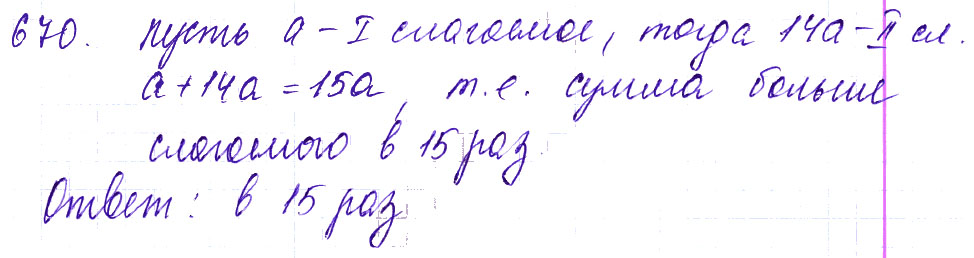 670. пусть а - I слагаемое, тогда 14а - II сл.
а + 14а = 15а, т.е. сумма больше
слагаемого в 15 раз
Ответ: в 15 раз